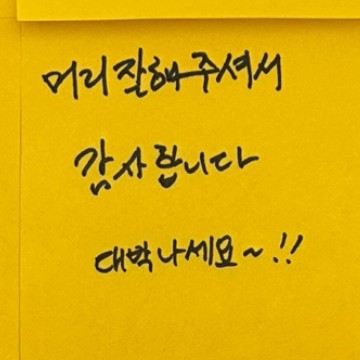 머리 잘해주셔서
감사합니다
대박나세요~!!